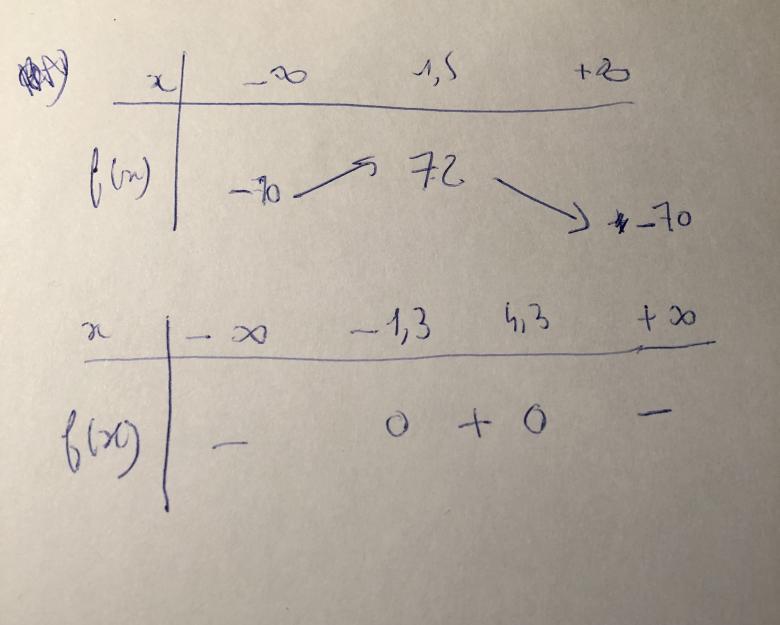 x -∞ 1,5 +∞
f(x) -70 ↗ 72 ↘ -70
x -∞ -1,3 4,3 +∞
f(x) - 0 + 0 -